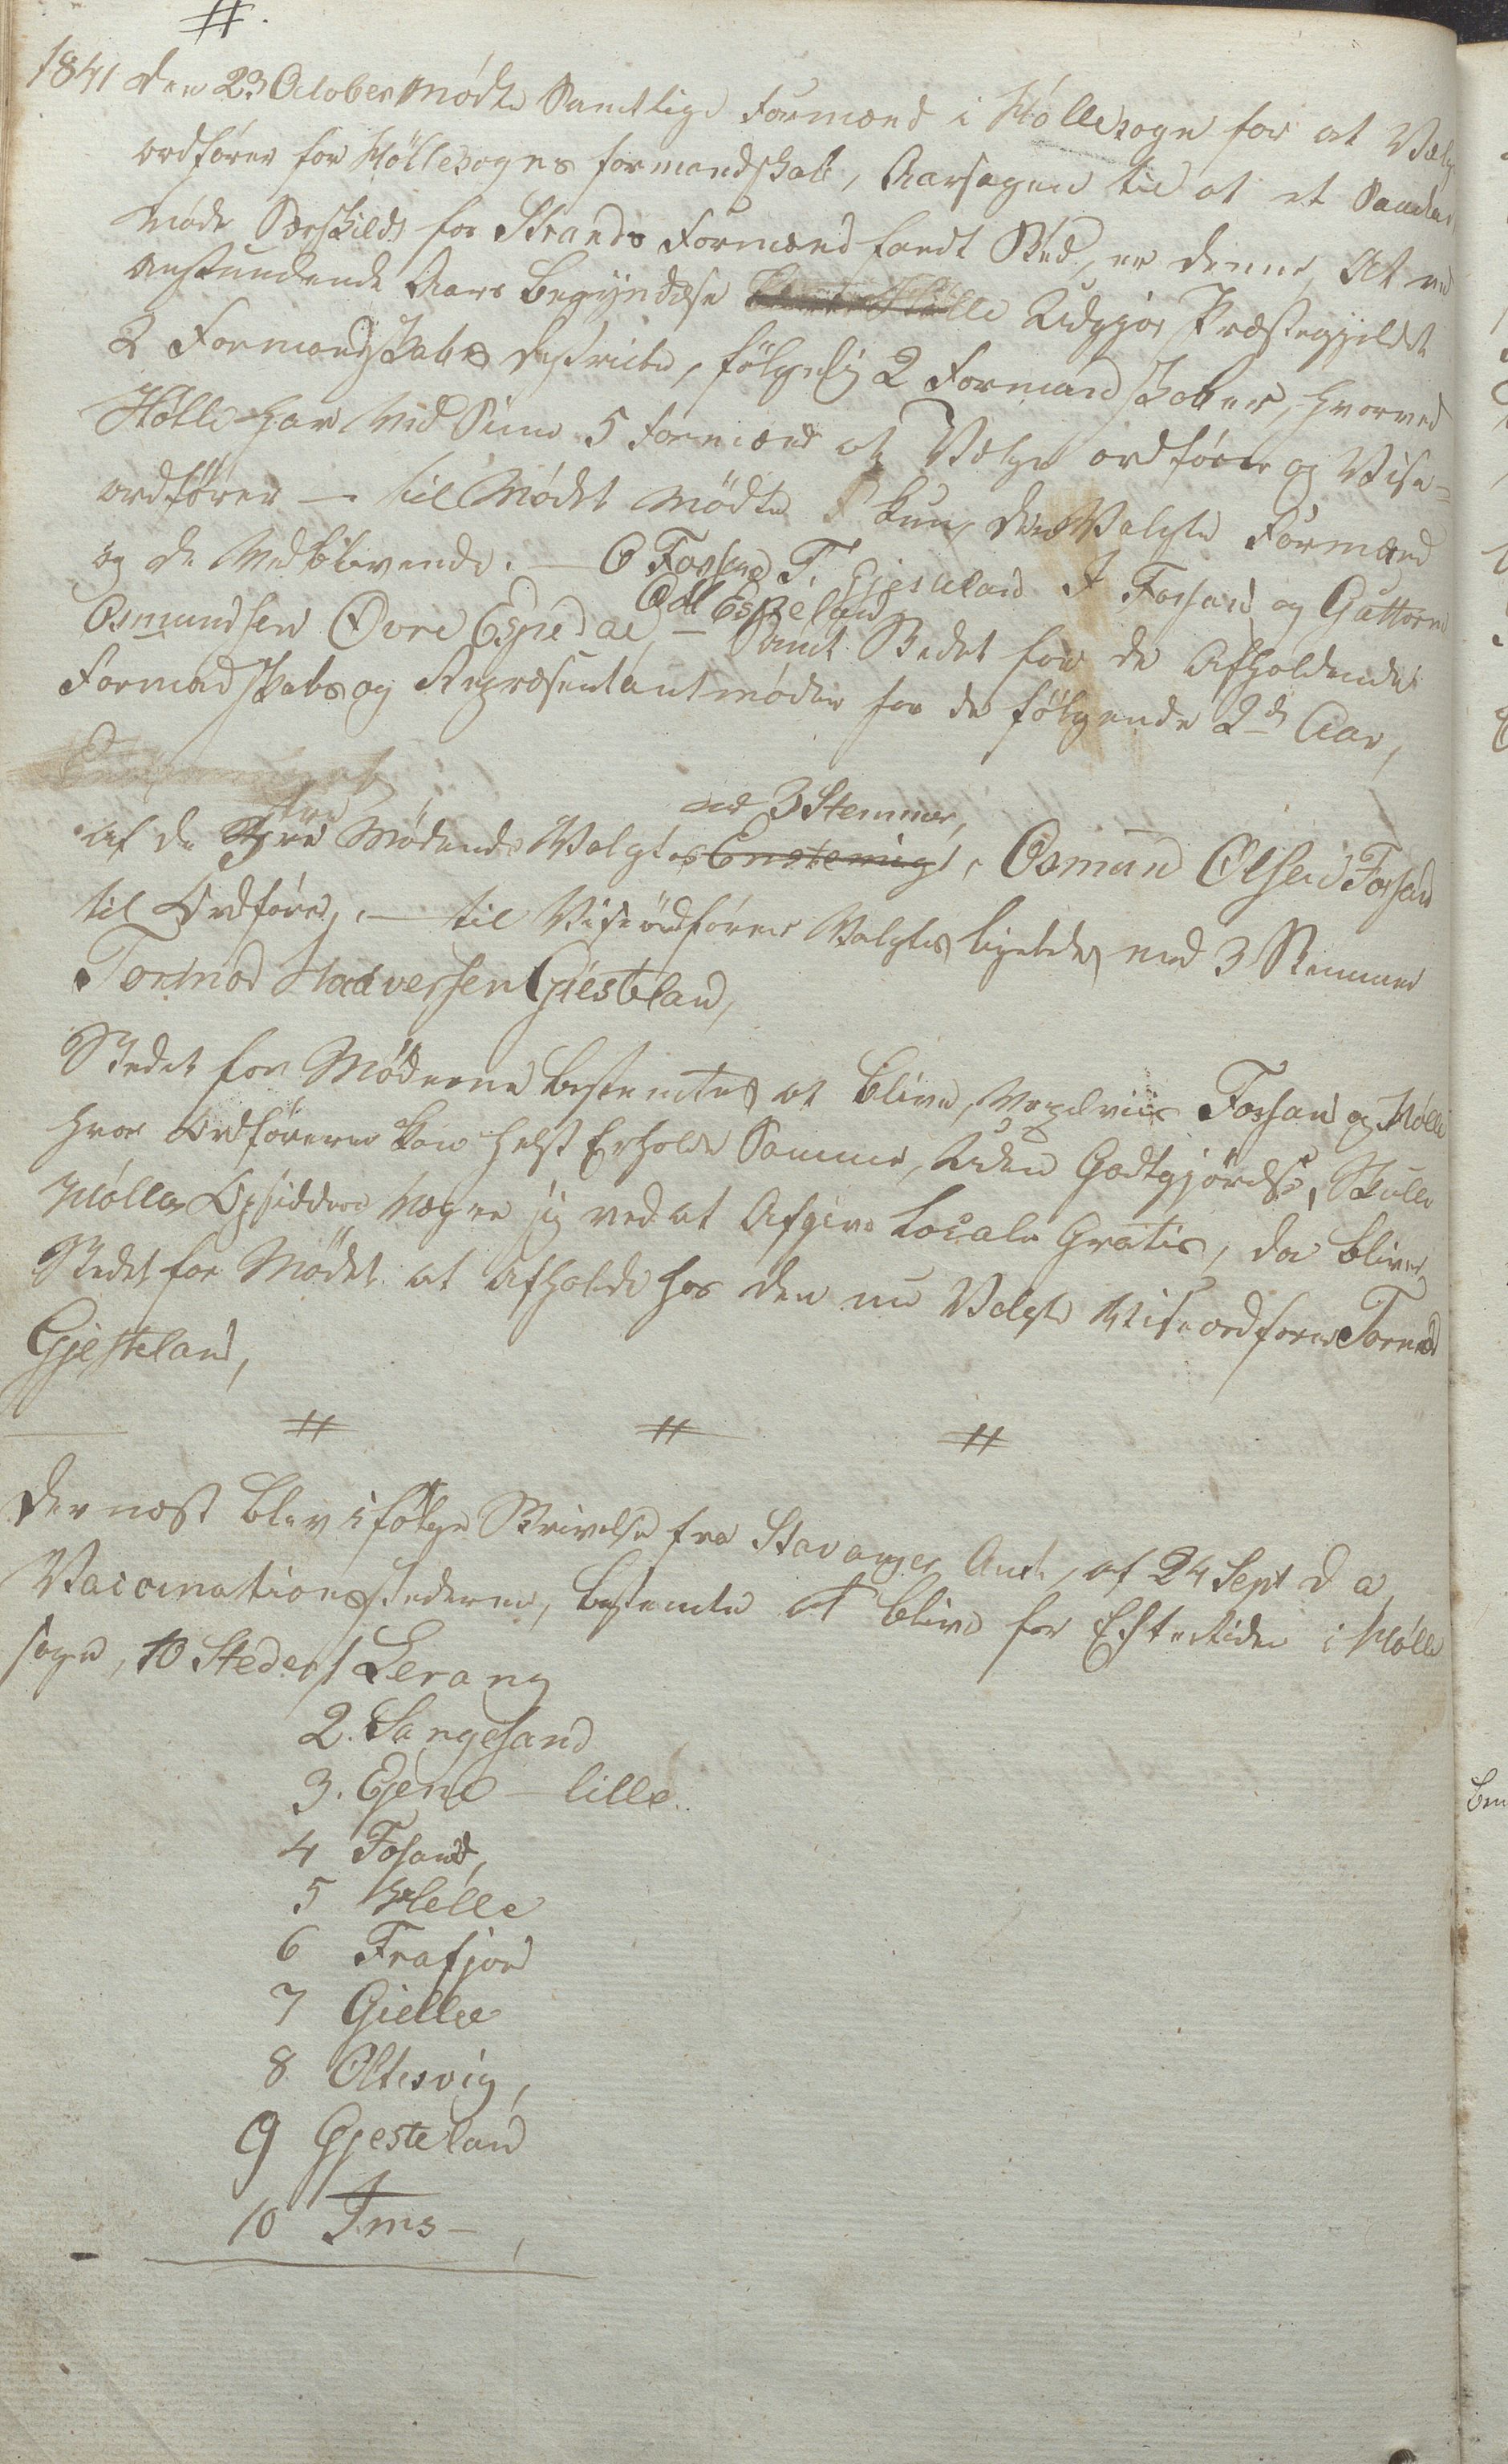 #.
1841 den 23 October Mødte Samtlige Formænd i Höllesogn for at Vælge
ordfører for Höllesogns formandskab, Aarsagen til at et Saadan
møde Særskildt for Strands Formænd fandt Sted, er denne, at ved
anstundende Aars Begyndelse Udgjør Præstegjeldet
2 Formandskabs destricter, fölgelig 2 Formandskaber, hvorved
Hölle har ved Sine 5 Formænd at Vælge ordförer og Vise-
ordfører — til Mödet Mödte kun den Valgte Formænd
og de Vedblivende. — O Fossand T. Gjesteland I Fossand og Guttorm
Odl Espeland
Osmundsen Övre Espedal, — Samt Stedet for de Afholdende
Formandskabs og Repræsentantmøder for de fölgende 2de Aar,
tre
med 3 Stemmer,
af de Mödende Valgtes Enstemigt, Osmund Olsen Fossand
til Ordfører, — til Viseordfører Valgtes ligeledes med 3 Stemmer
Tormod Halversen Giesteland,
Stedet for Møderne bestemtes at blive, Fossan og Hölle
hvor Ordføreren kan helst Erholde Samme, Uden Godtgjørelse, Skulle
Hölles Opsiddere vægre sig ved at Afgive Locale Gratis, da bliver
Stedet for Mødet at afholde hos den nu Valgte Viseordfører Tormod
Gjesteland,
# # #
Dernæst blev ifölge Skrivelse fra Stavanger Amt, af 24 Sept d a,
Vaccinationsstederne, bestemte at blive for Eftertiden i Hölle
sogn, 10 Steder 1 Lerang
2. Sangesand
3. Ejene — lille.
4 Fosand,
5 Helle
6 Frafjord
7 Gielle
8 Oltesvig,
9 Gjesteland
10 Ims —,